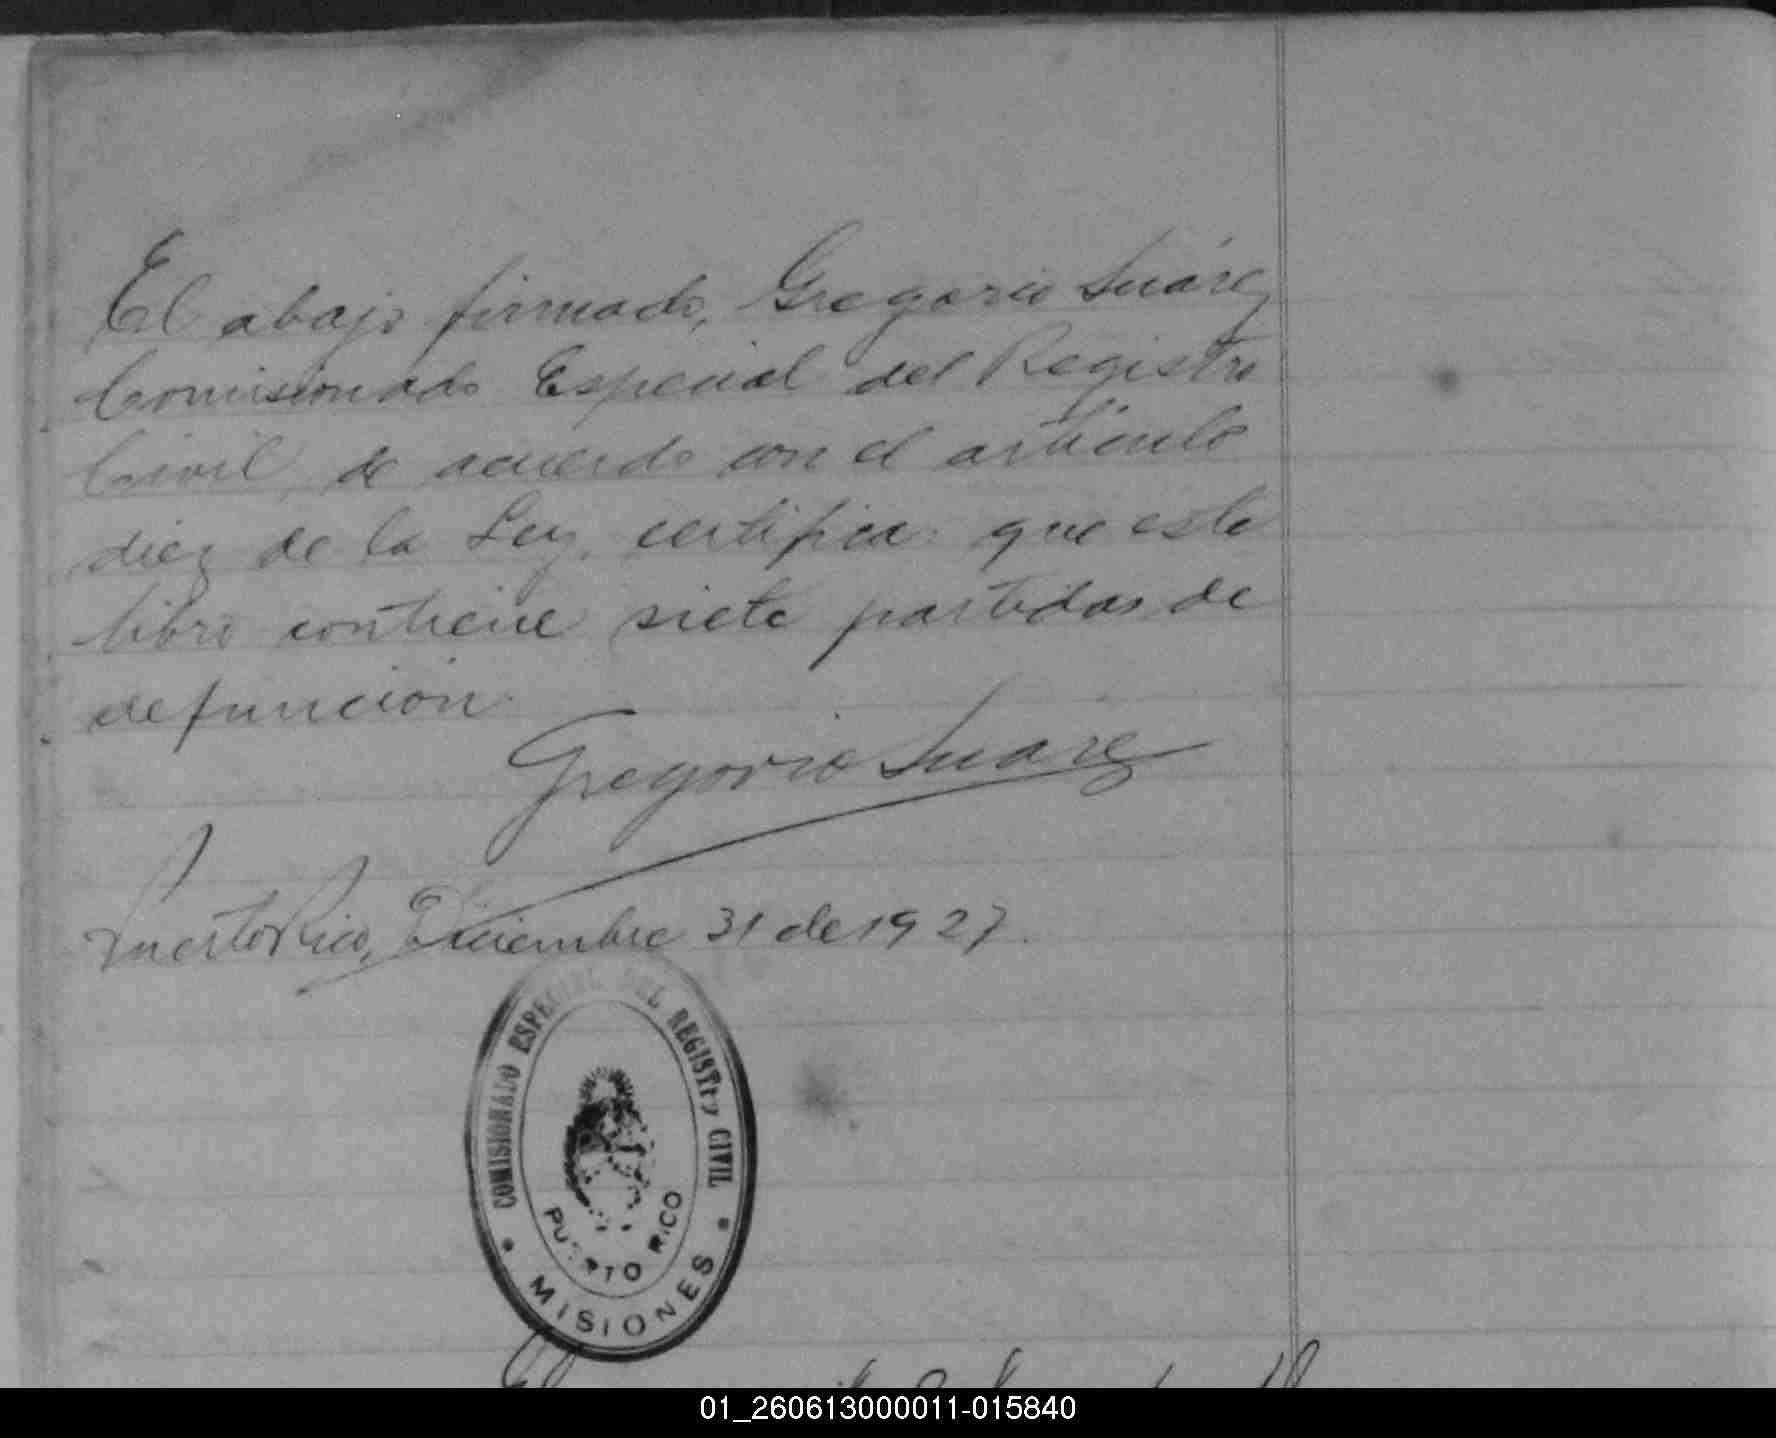 El abajo firmado, Gregorio Suárez
Comisionado Especial del Registro
Civil, de acuerdo con el artículo
diez de la Ley, certifica: que este
libro contiene siete partidas de
defunción.
Gregorio Suárez
Puerto Rico, Diciembre 31 de 1927.
COMISIONADO ESPECIAL DEL REGISTRO CIVIL
PUERTO RICO
MISIONES
01_260613000011-015840